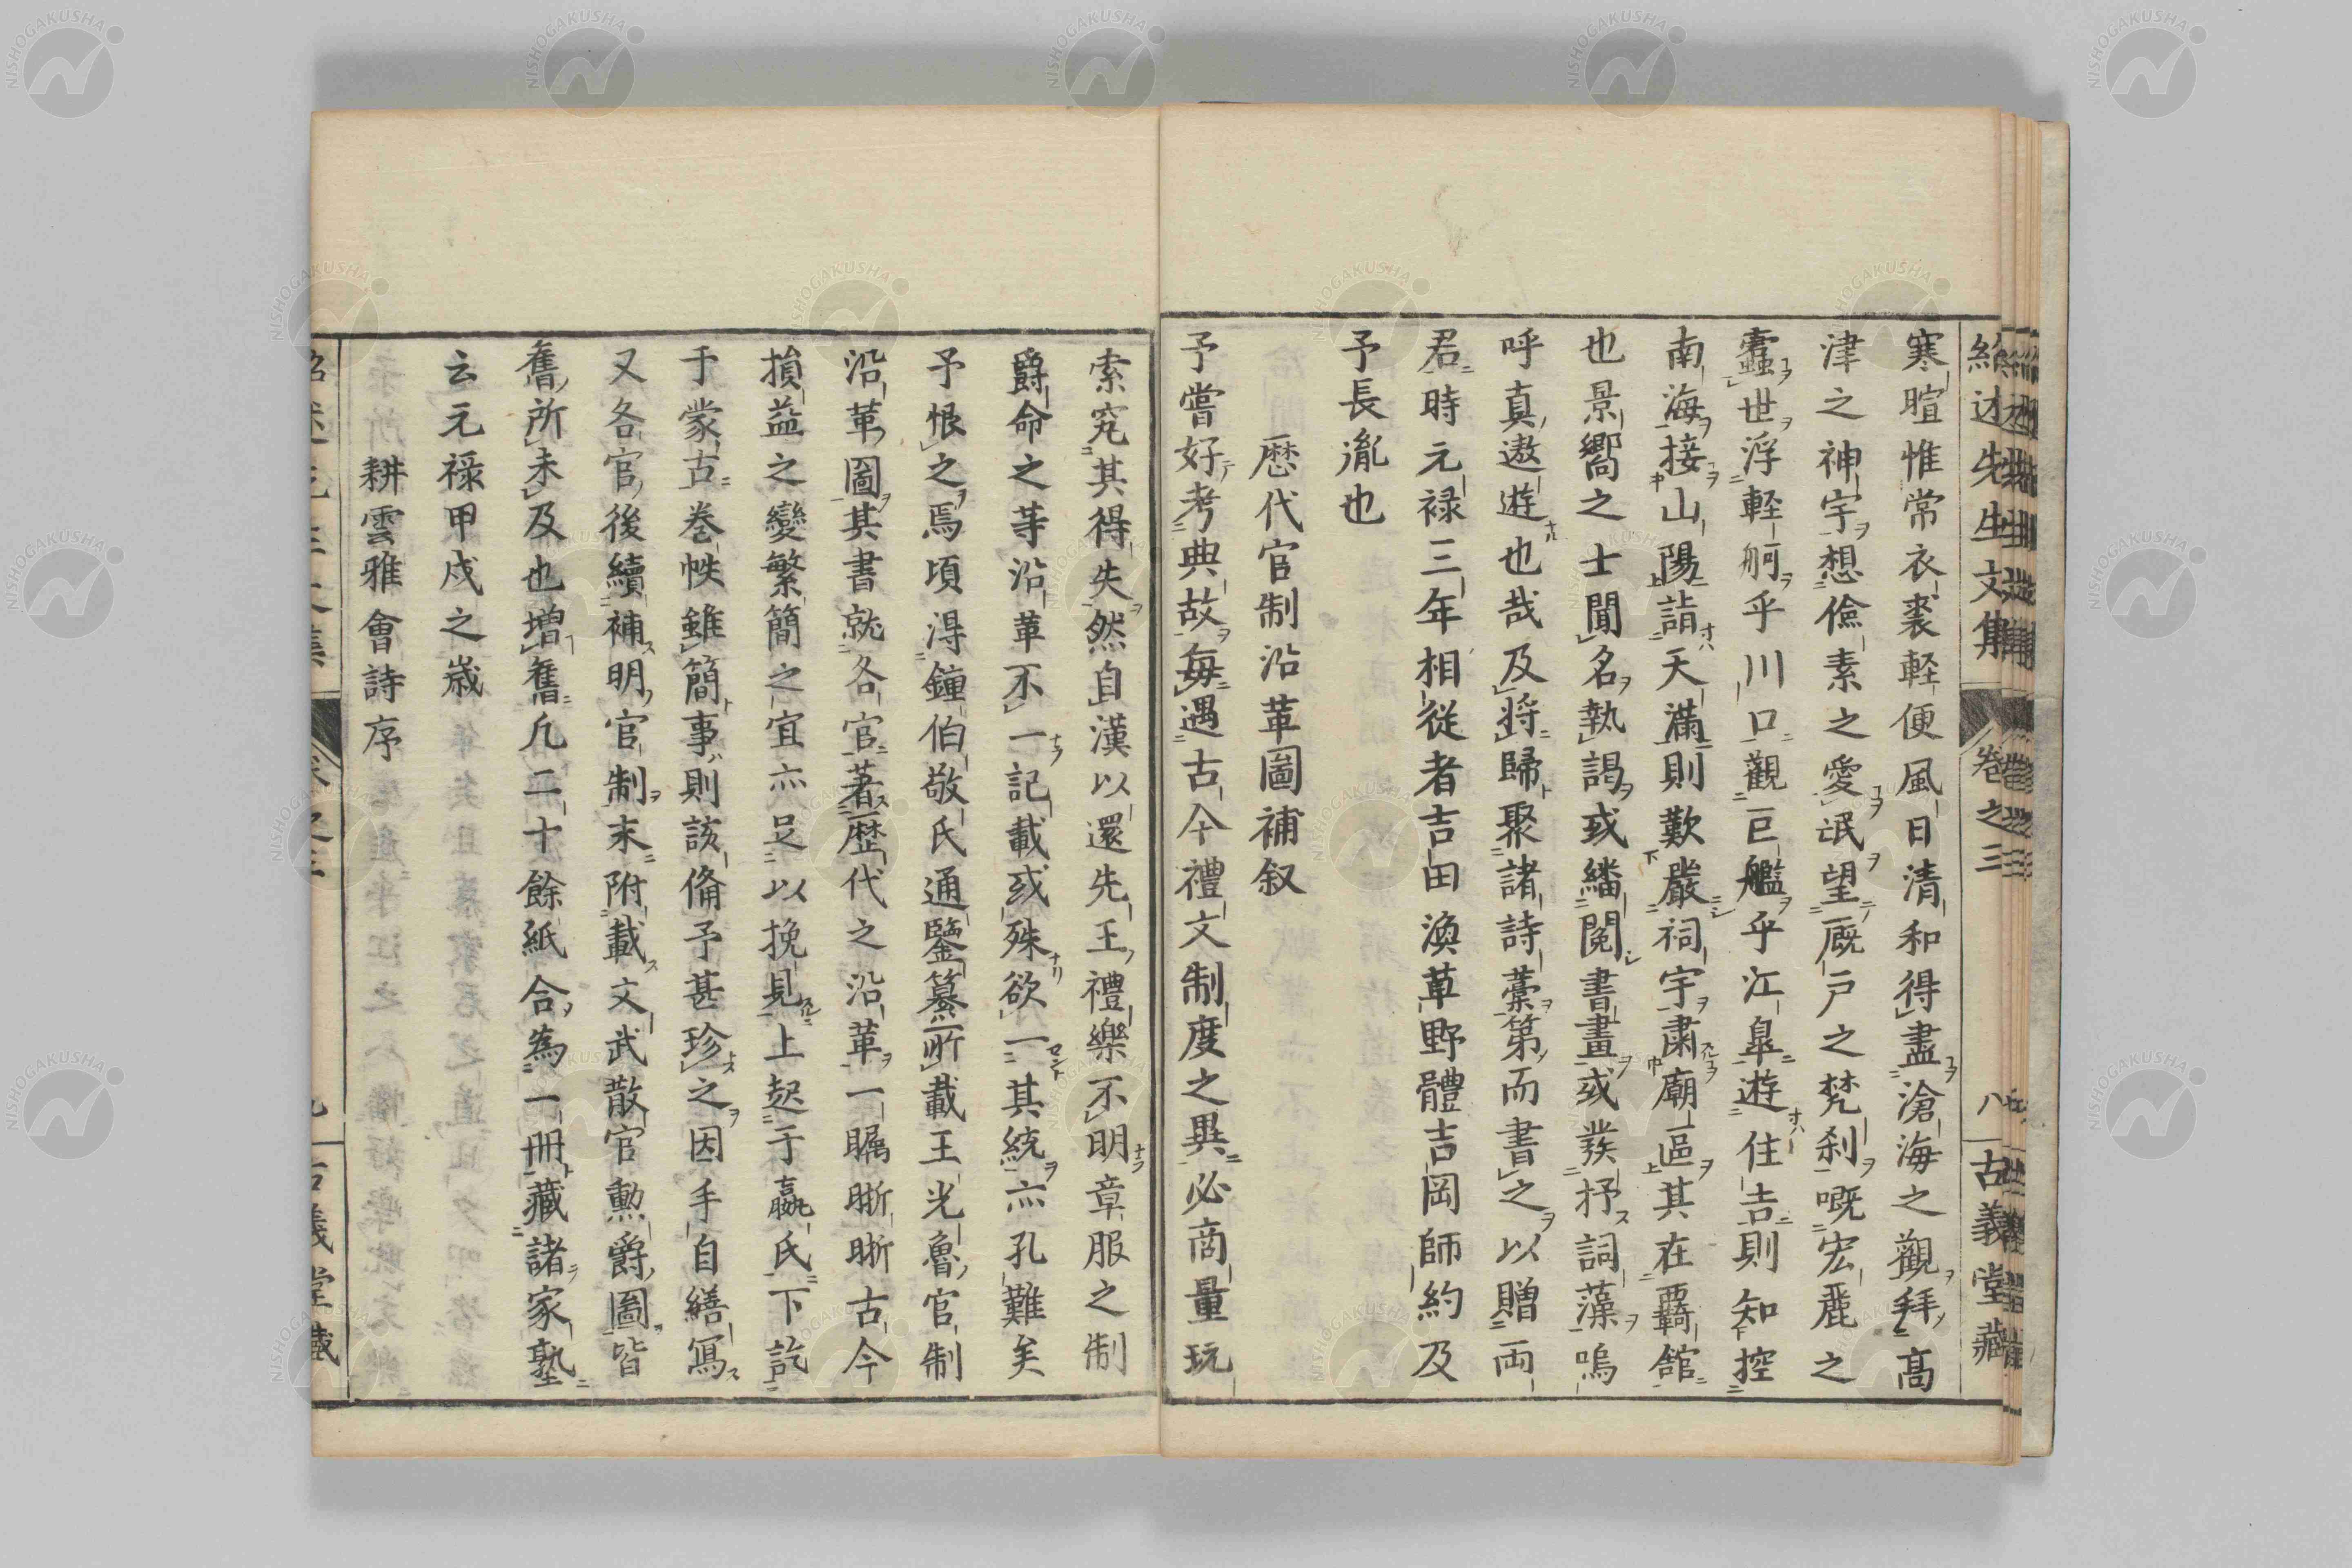 紹述先生文集 卷之三 八 古義堂藏
寒暄惟常衣裘輕便風日清和得盡滄海之觀拜高
津之神宇想儉素之愛民望厩戸之梵刹嘅宏麗之
蠹世浮輕舸乎川口觀巨艦乎江皐遊住吉則知控
南海接山陽詣天滿則歎嚴祠宇肅廟區其在覊舘
也景嚮之士聞名執謁或繙閱書畫或發抒詞藻嗚
呼真遨遊也哉及將歸聚諸詩藁第而書之以贈両
君時元祿三年相從者吉田渙草野體吉岡師約及
予長胤也
歷代官制沿革圖補叙
予嘗好考典故每遇古今禮文制度之異必商量玩
索究其得失然自漢以還先王禮樂不明章服之制
爵命之䓁沿革不一記載或殊欲一其統亦孔難矣
予恨之焉頃淂鍾伯敬氏通鑒纂所載王光魯官制
沿革圖其書就各官著歷代之沿革一矚晣晣古今
損益之變繁簡之宜亦足以挽見上起于嬴氏下訖
于蒙古卷帙雖簡事則該備予甚珍之因手自繕寫
又各官後續補明官制末附載文武散官勳爵圖皆
舊所未及也增舊凢二十餘紙合為一冊藏諸家塾
云元祿甲戍之歲
耕雲雅會詩序